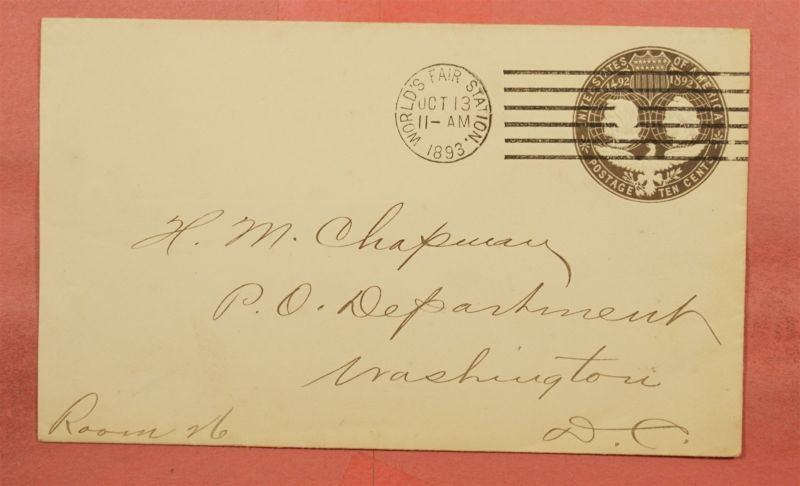 WORLD'S FAIR STATION.
OCT 13
11-AM
1893.
UNITED STATES OF AMERICA
1492 1892
POSTAGE TEN CENTS
H. M. Chapman
P. O. Department
Washington
D. C.
Room 26